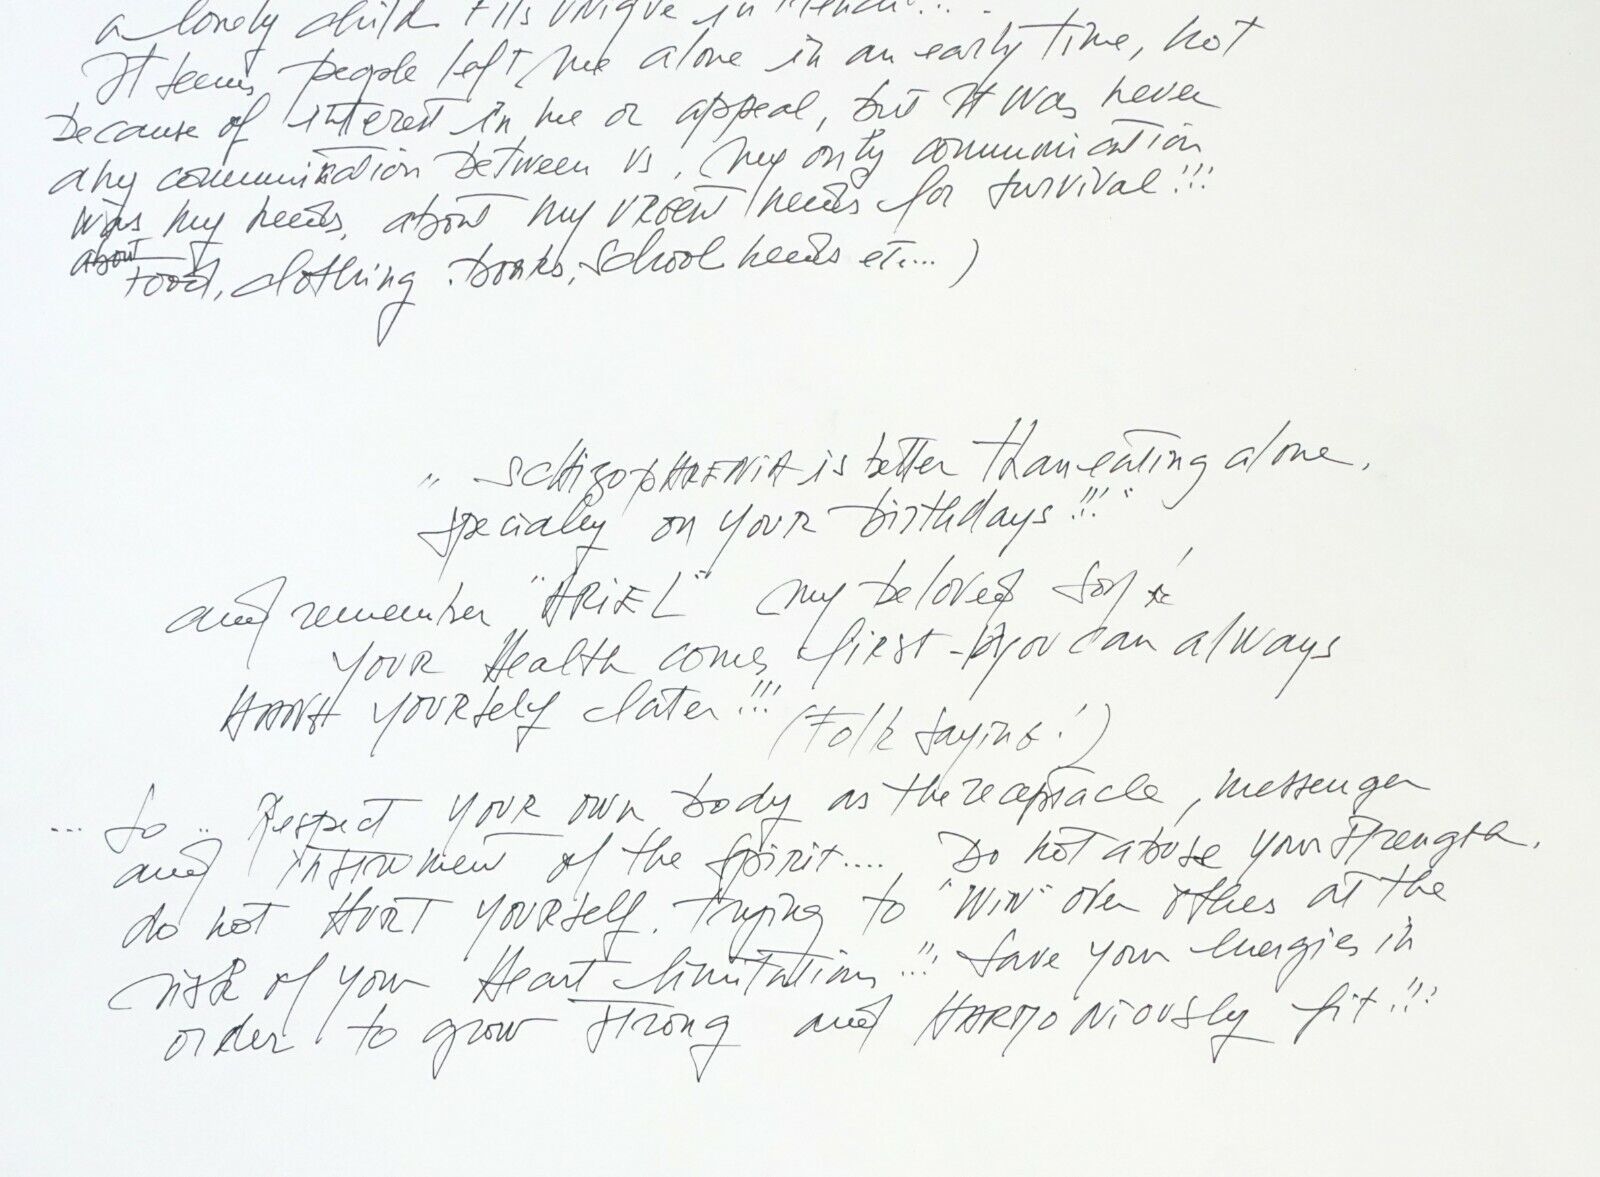 a lonely child its unique in
It seems people left me alone in an early time, not
because of interest in me or appeal, but it was never
any communication between us. (my only communication
was my needs, about my URGENT needs for survival!!!
about food, clothing. books, school needs etc.... )
" SCHIZOPHRENIA is better than eating alone,
specialy on YOUR birthdays!!!"
and remember "ARIEL" my beloved son!
YOUR Health comes first - you can always
HANG YOURSELF later!!!
(Folk saying!)
... So .. Respect YOUR own body as the receptacle, messenger
and instrument of the spirit.... Do not abuse your strength,
do not HURT YOURSELF. trying to "WIN" over others at the
risk of your Heart limitations!!! Save your energies in
order to grow strong and HARMONIOUSLY fit!!!